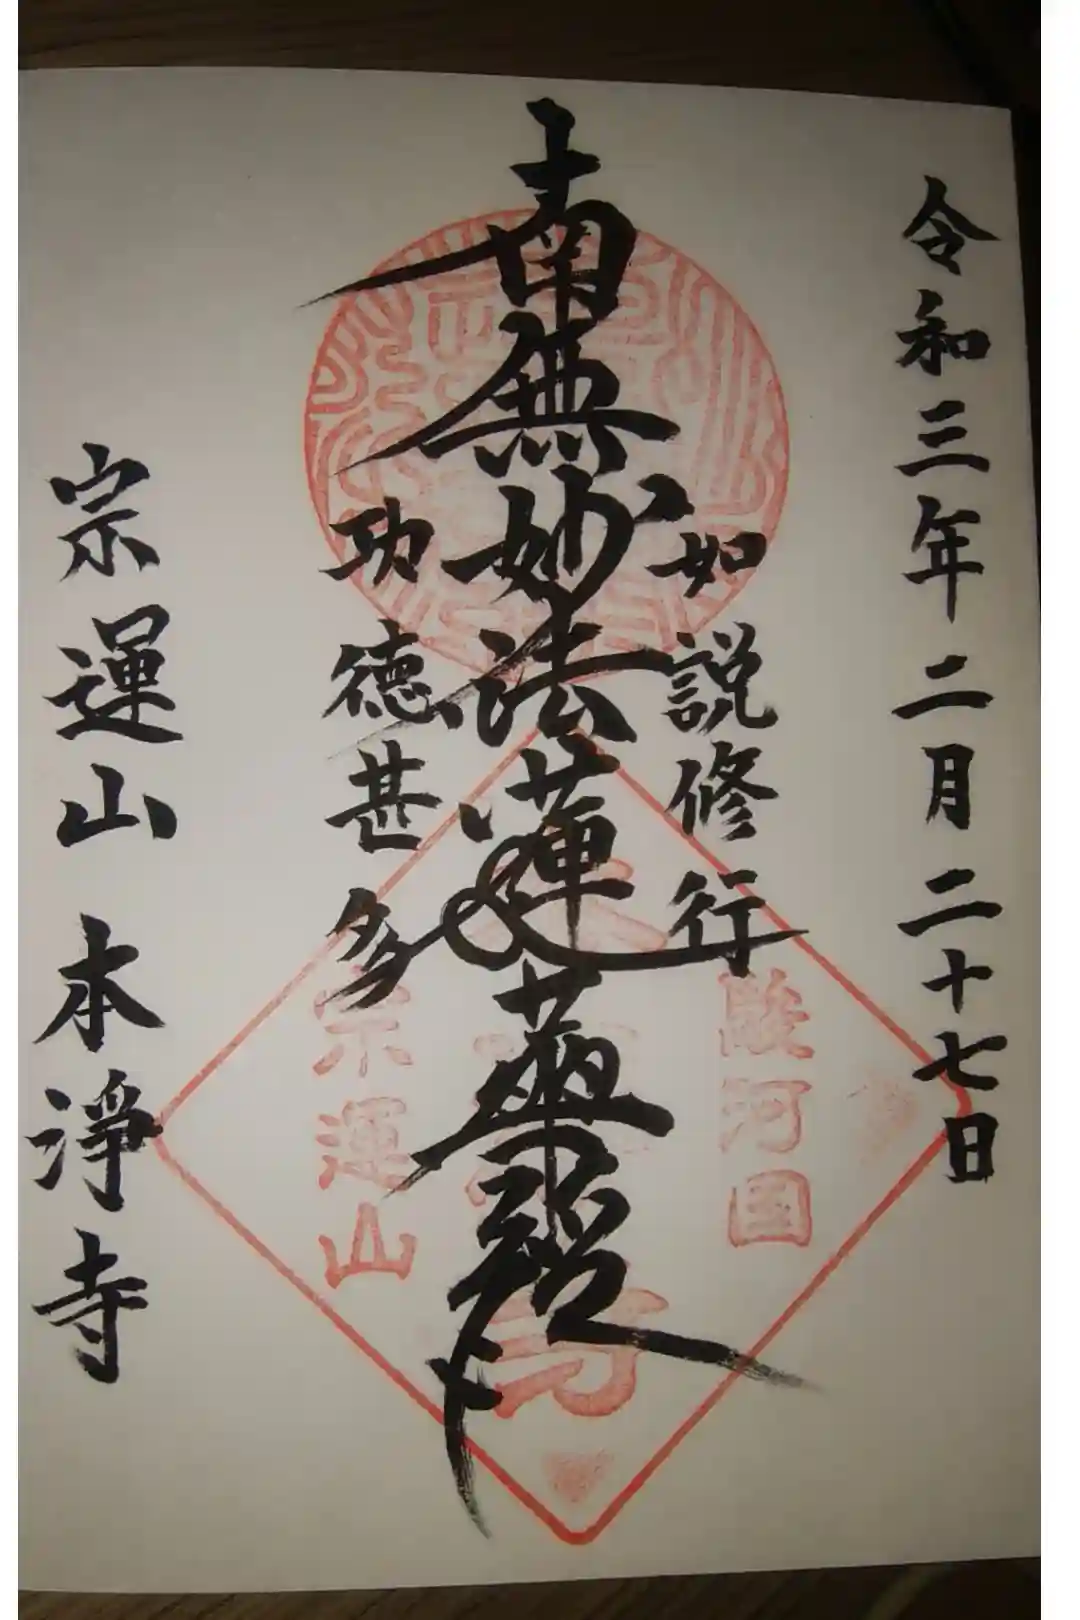 令和三年二月二十七日
如説修行
南無妙法蓮華経
功徳甚多
宗運山 本浄寺
駿河国
宗運山